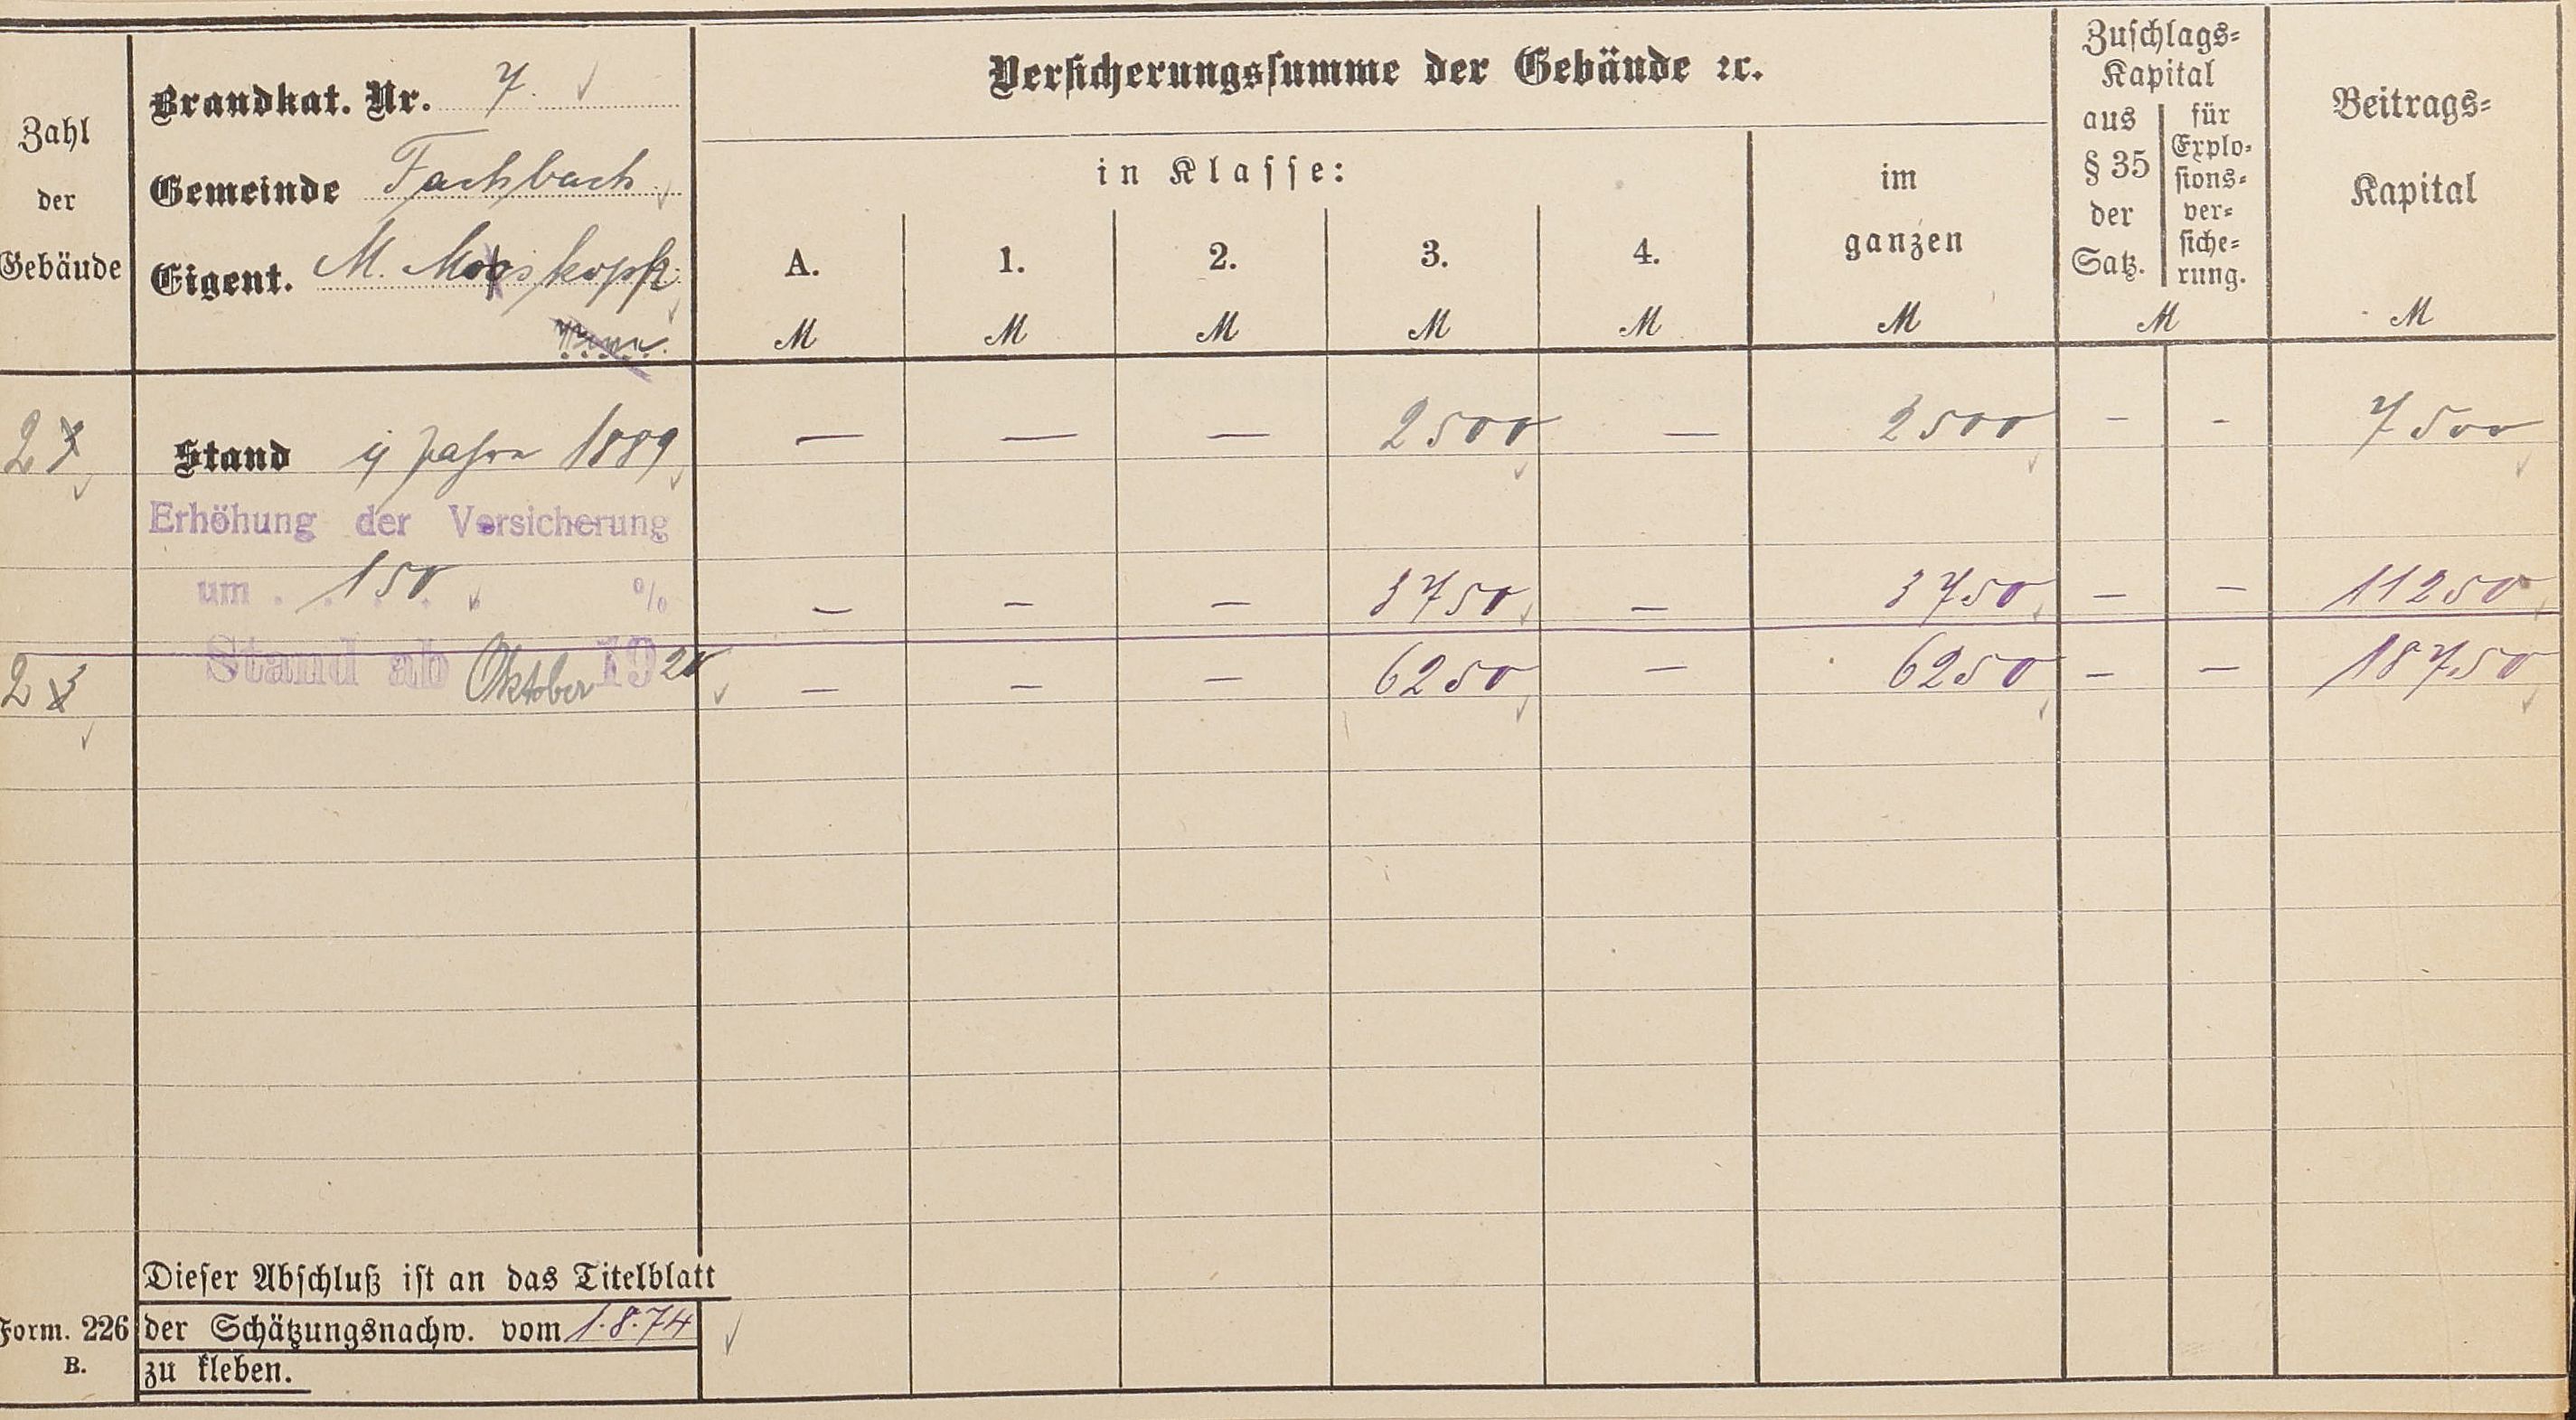 Zahl der Gebäude
Brandkat. Nr. 7.
Gemeinde Fachbach
Eigent. M. Moskopf
Versicherungssumme der Gebäude ꝛc.
in Klasse:
A. 1. 2. 3. 4.
im ganzen
Zuschlags-Kapital
aus § 35 der Satz.
für Explosionsversicherung.
Beitrags-Kapital
M M M M M M M M
2 Stand Jahre 1889 — — — 2500 — 2500 - - 7500
Erhöhung der Versicherung
um 150 % — — — 3750 — 3750 — — 11250
2 Stand ab Oktober 1920 — — — 6250 — 6250 — — 18750
Dieser Abschluß ist an das Titelblatt
Form. 226 B.
der Schätzungsnachw. vom 1.8.74
zu kleben.